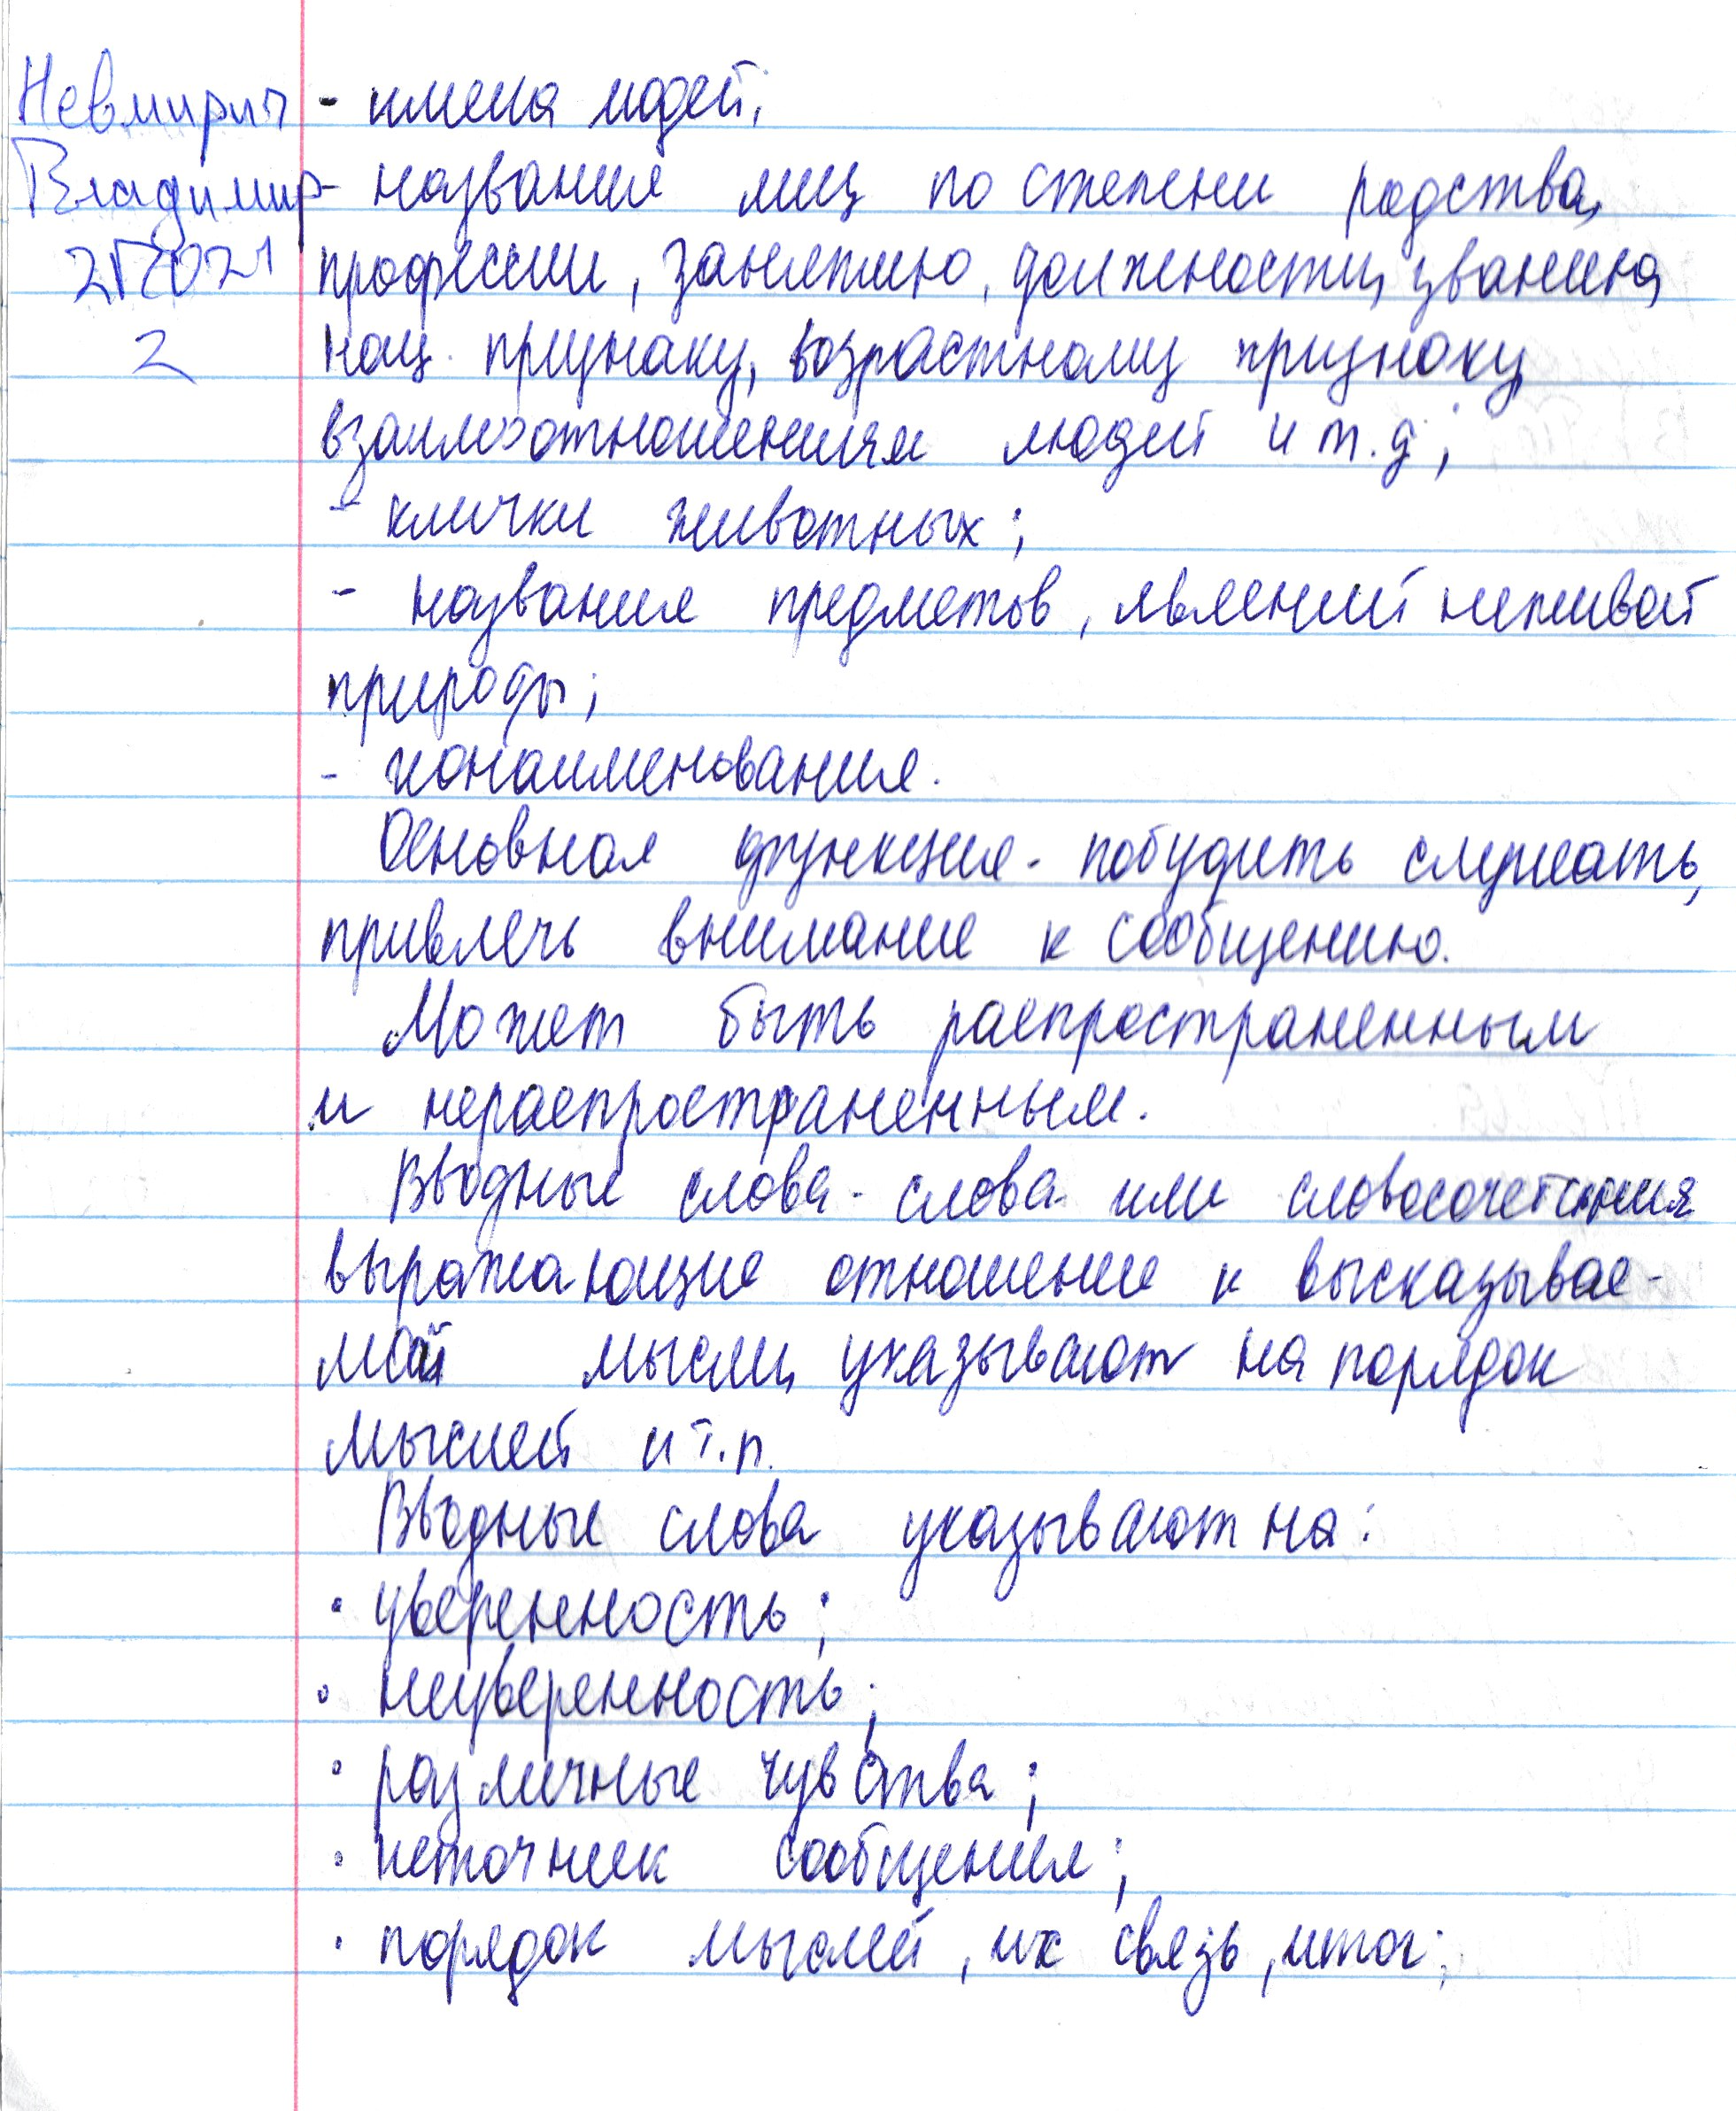 Невмирич
Владимир
2П2021
2
- имена людей,
- название лиц по степени родства,
профессии, занятию, должности, званию,
нац. признаку, возрастному признаку,
взаимоотношениям людей и т.д;
- клички животных;
- название предметов, явлений неживой
природы;
- Основная функция - побудить слушать,
привлечь внимание к сообщению.
Может быть распространенным
и нераспространенным.
Вводные слова - слова или словосочетания
выражающие отношение к высказывае-
мой мысли, указывают на порядок
мыслей и т.п.
Вводные слова указывают на:
• уверенность;
• неуверенность;
• различные чувства;
• источник сообщения;
• порядок мыслей, их связь, итог;